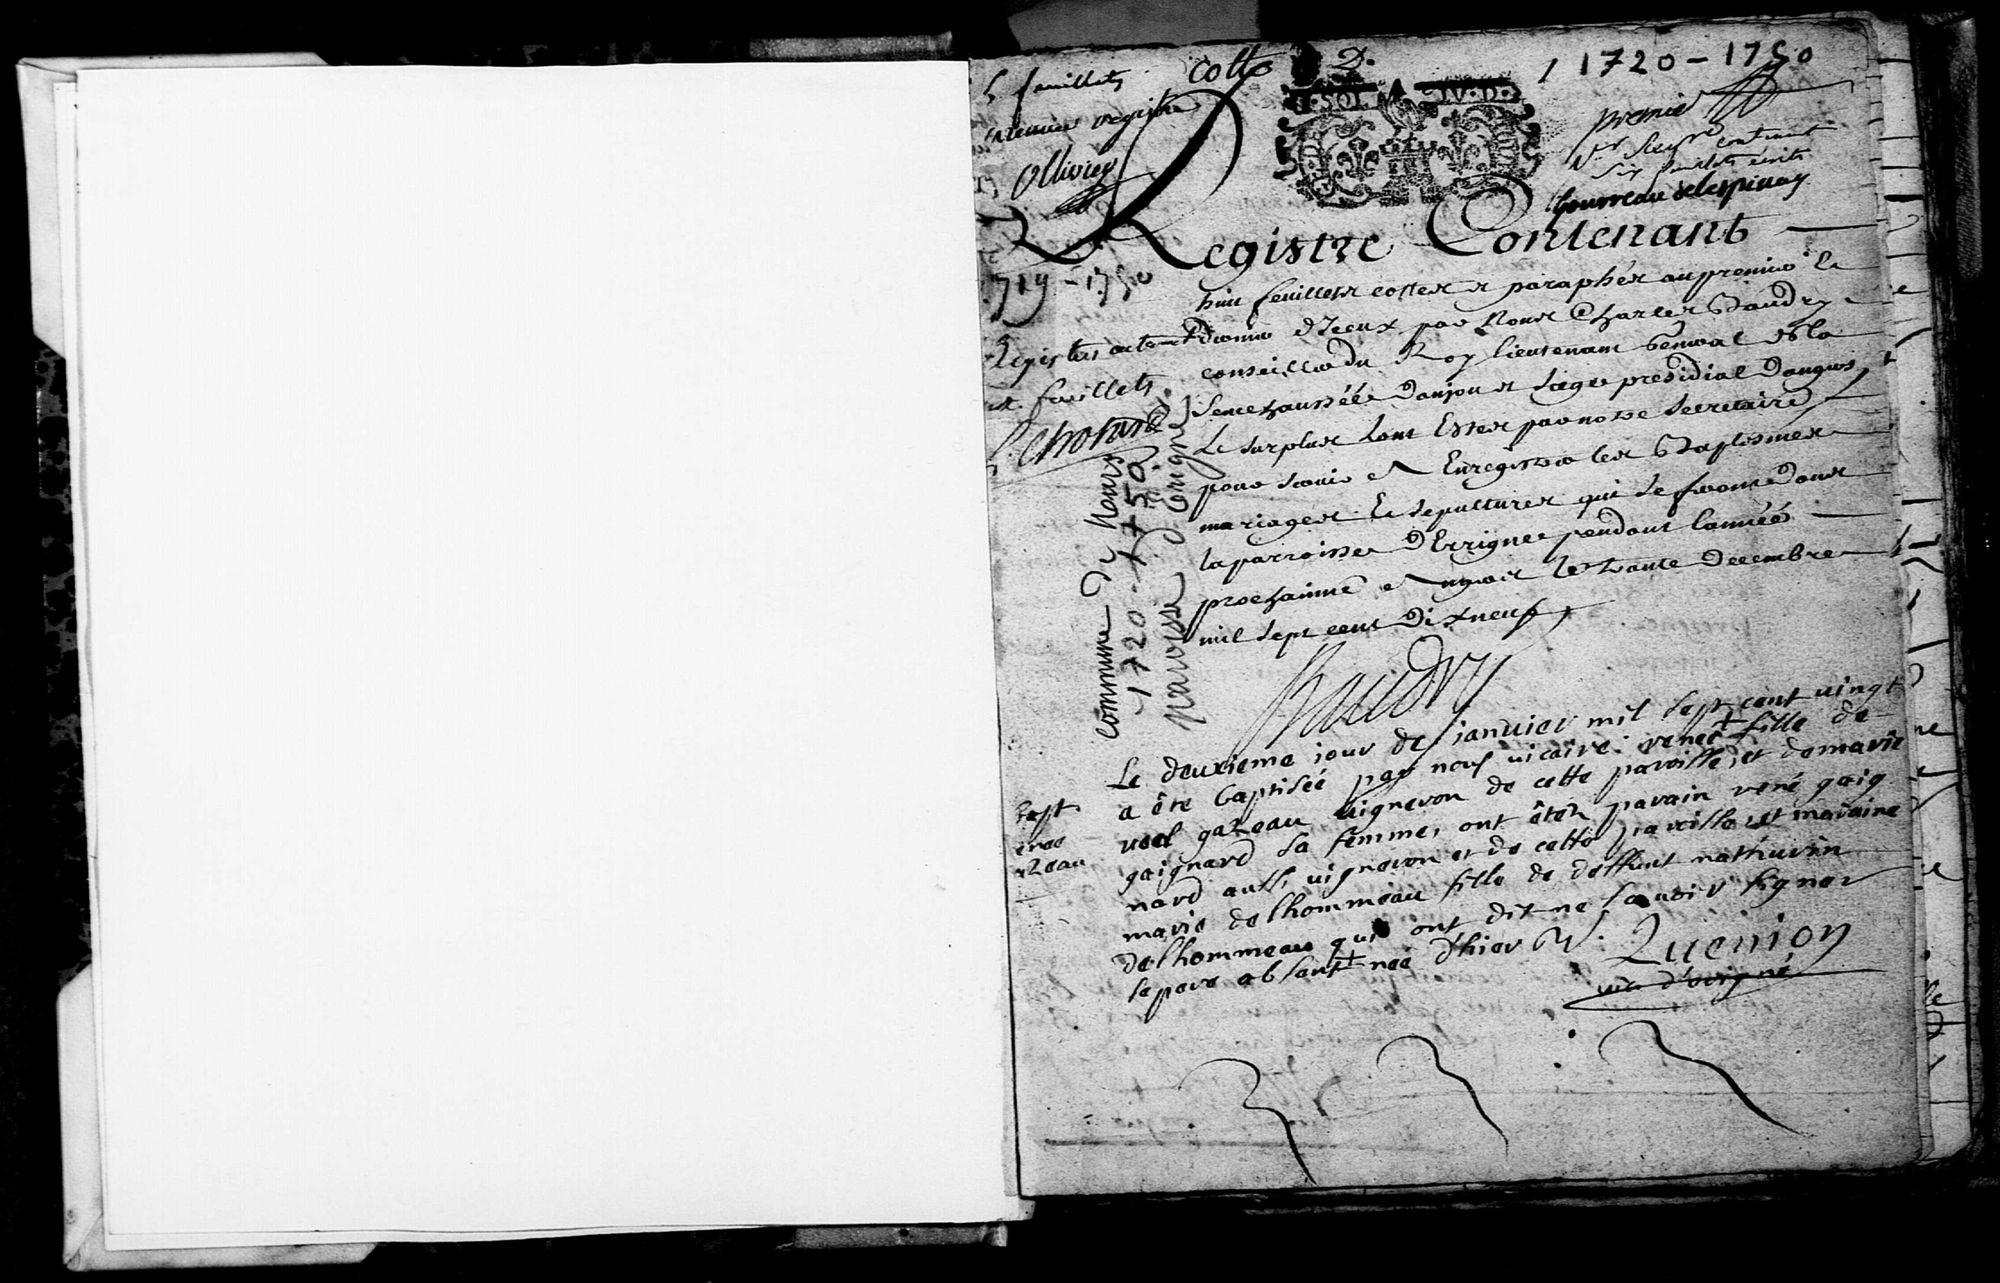 5 feuillets
cotté 2.
1 1720 - 1750
premier
registre
Ollivier
contenant
six feuillets écrits
Gourreau delespinay
Registre Contenant
719 - 1750
huit feuillets cottes et paraphés au premier et
dernier d'Iceux par Nous Charles Baudry
conseiller du Roy lieutenant general de la
Senechaussée Danjou et siege presidial Dangers,
Le surplus Lont Estes par notre secretaire
pour servir et Enregistrer les Baptesmes
mariages et sepultures qui se feront dans
la parroisse D'Errigné pendant lannée
prochainne a angers le trante Decembre
mil sept cent Dix neuf
Baudry
Registres
feuillets
commune de Murs
1720 - 1750
paroisse d'Erigné
Le deuxieme jour de janvier mil sept cent vingt
a ête baptisée par nous vicaire renee + fille de
noel gazeau vignevon de cette paroisse, et de marie
gaignard sa femme, ont êtez parain rené gaig
nard aussi vigneron et de cette paroisse et maraine
marie delhommeau fille de deffunt mathurin
delhommeau qui ont dit ne savoir signer
le pere absent + née d'hier
Bapt
renee
gazeau
Quenion
vic d'erigné